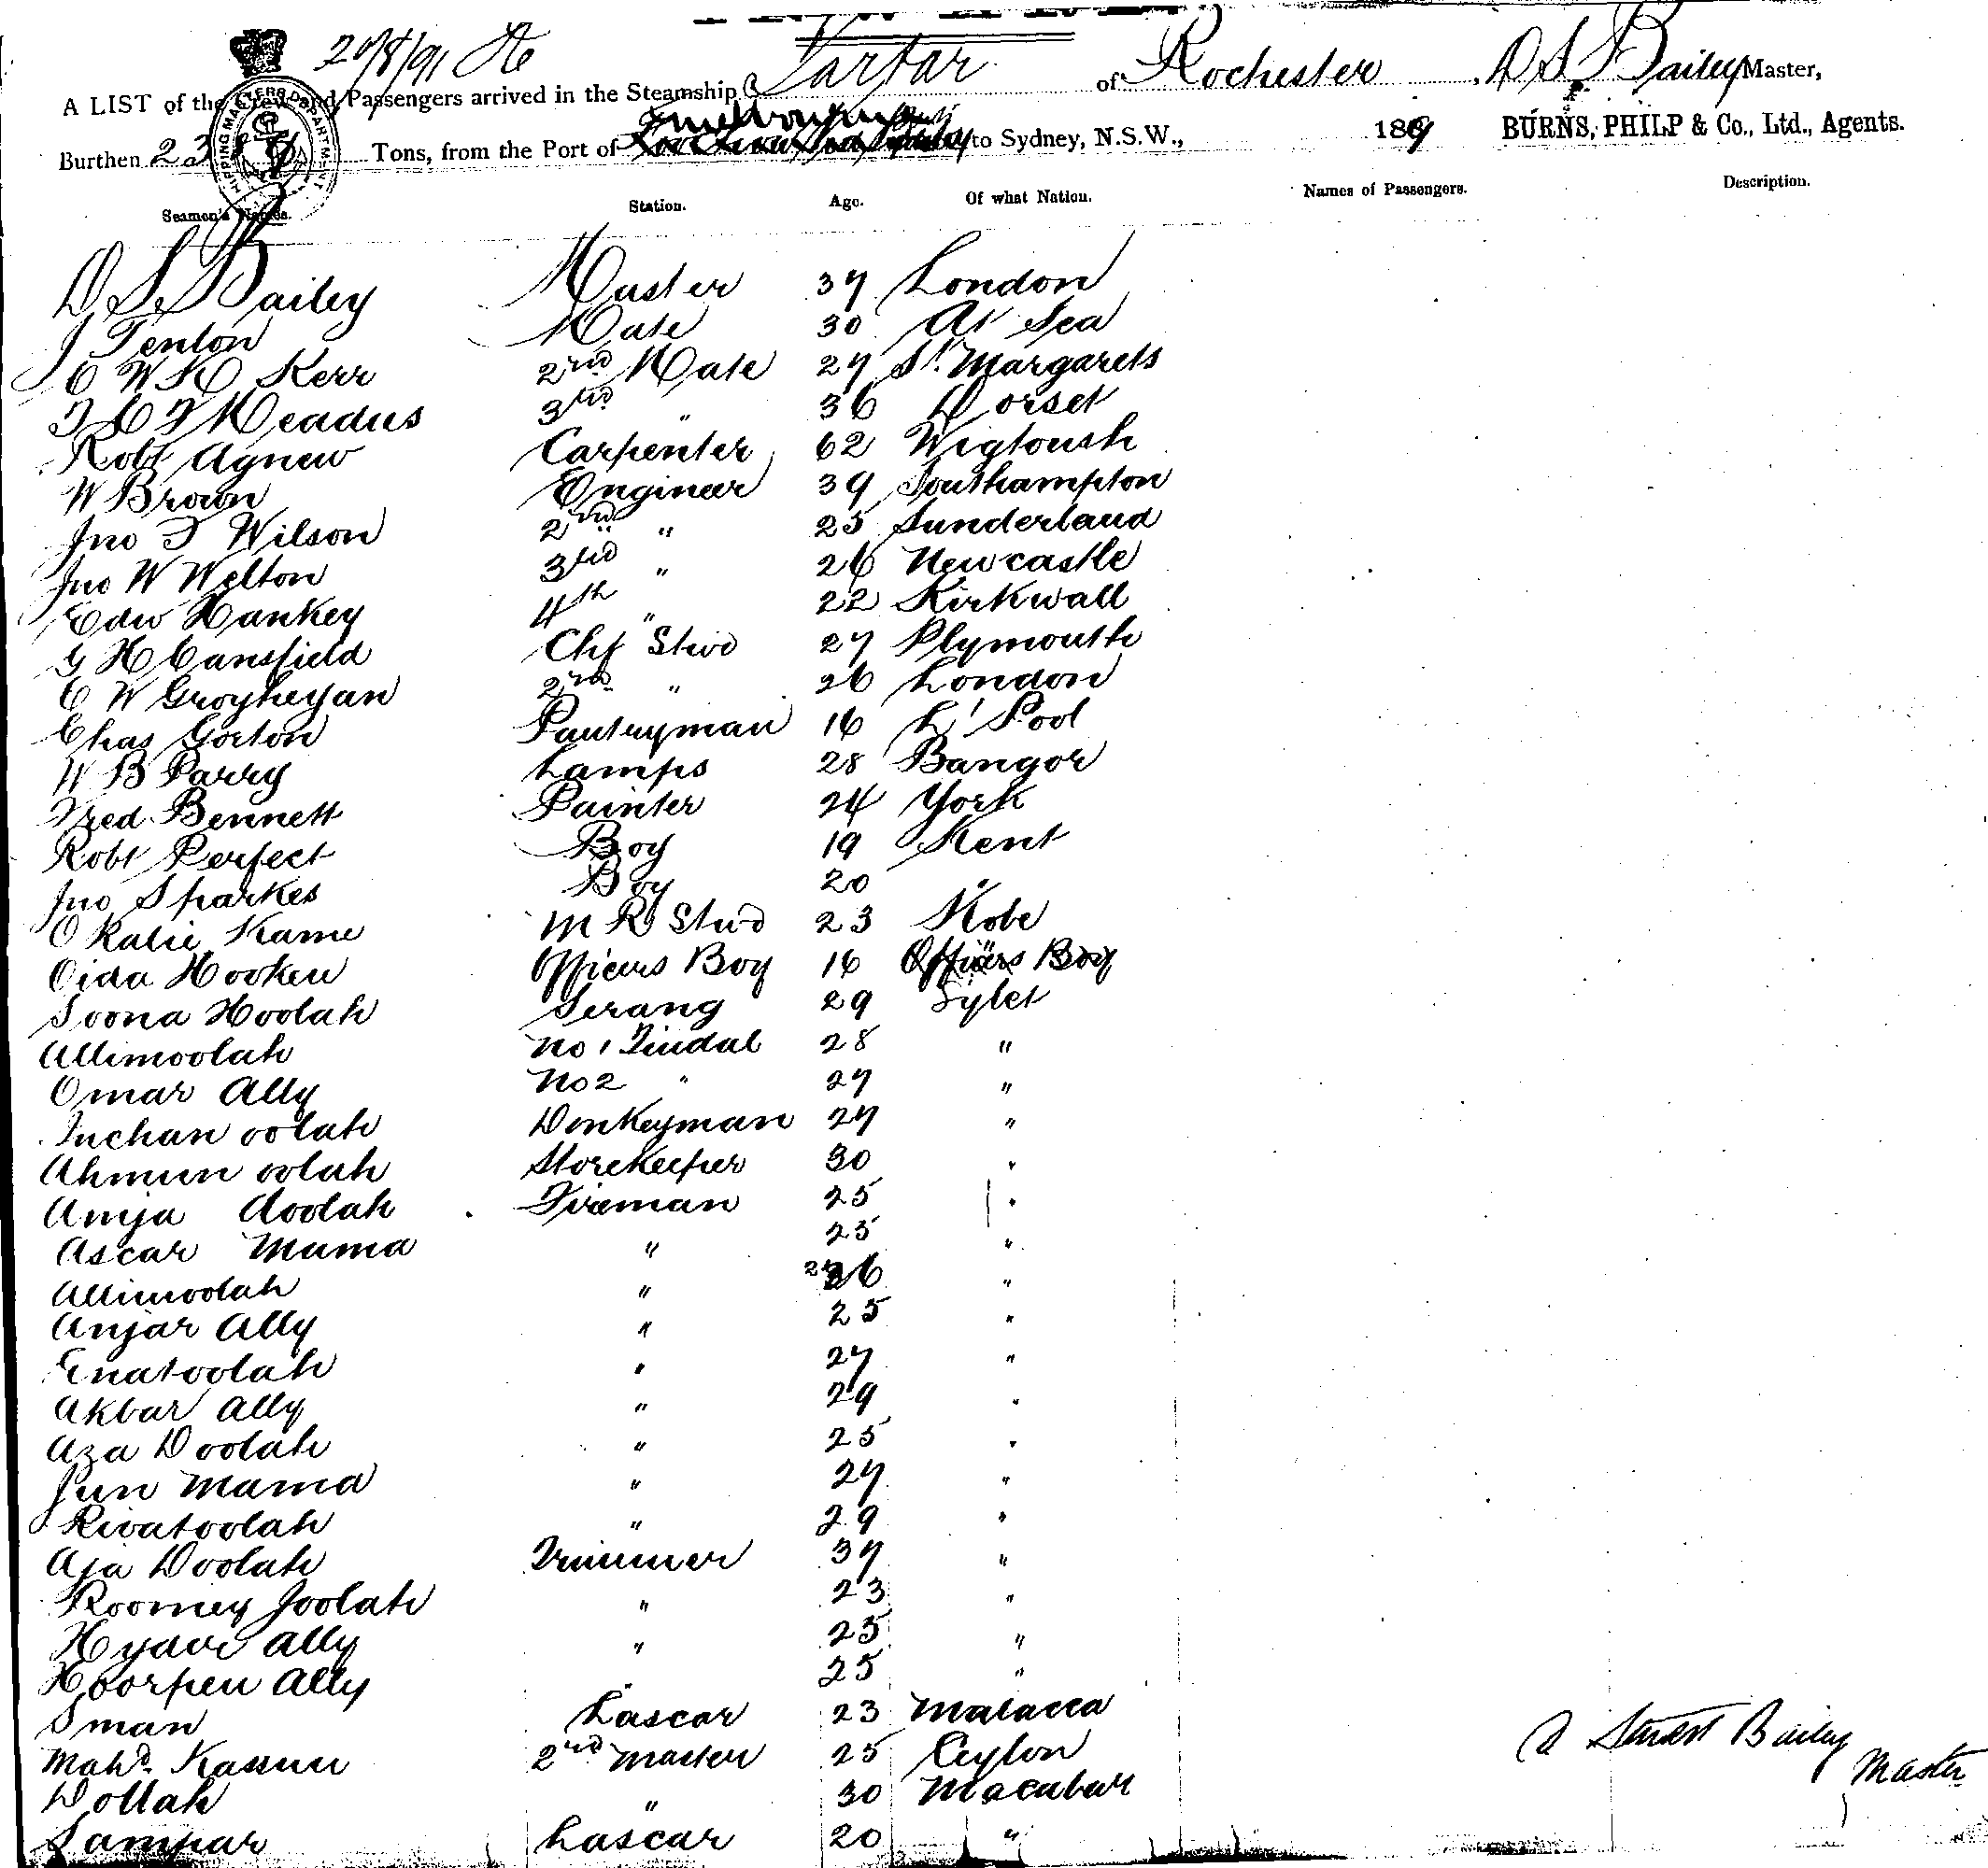 20/8/91
A LIST of the Crew and Passengers arrived in the Steamship Tartar of Rochester, D S Bailey Master,
Burthen Tons, from the Port of Melbourne to Sydney, N.S.W., 189 BURNS, PHILP & Co., Ltd., Agents.
SHIPPING MASTERS DEPARTMENT
Seamen's Names. Station. Age. Of what Nation. Names of Passengers. Description.
D S Bailey Master 37 London
J Fenton Mate 30 At Sea
C W K Kerr 2nd Mate 27 St Margarets
F C F Meadus 3rd " 36 Dorset
Robt Agnew Carpenter 62
W Brown Engineer 39 Southampton
Jno T Wilson 2nd " 25 Sunderland
Jno W Welton 3rd " 26 Newcastle
Edw Hankey 4th " 22 Kirkwall
G H Cansfield Chf Stwd 27 Plymouth
C W 2nd " 26 London
Chas Gorton Pantryman 16 L'Pool
W B Parry Lamps 28 Bangor
Fred Bennett Painter 24 York
Robt Perfect Boy 19 Kent
Jno Sparkes Boy 20 "
O Kame M R Stwd 23 Kobe
Oida Hooken Officers Boy 16 Officers Boy
Soona Hoolah Serang 29 Sylet
Allimoolah No 1 Tindal 28 "
Omar Ally No 2 " 27 "
Inchan oolah Donkeyman 27 "
Ahmun oolah Storekeeper 30 "
Amja doolah Fireman 25 "
Ascar Mama " 25 "
Allimoolah " 26 "
Anjar Ally " 25 "
Enatoolah " 27 "
Akbar Ally " 29 "
Aza Doolah " 25 "
Jun Mamd " 27 "
Rivatoolah " 29 "
Aja Doolah Trimmer 37 "
Roomey Joolah " 23 "
Hydor Ally " 25 "
Hoorpen Ally " 25 "
Sman Lascar 23 Malacca
Mahd Kassim 2nd Master 25 Ceylon
Dollah " 30 Macabar
Sampar Lascar 20 "
D Stuart Bailey
Master